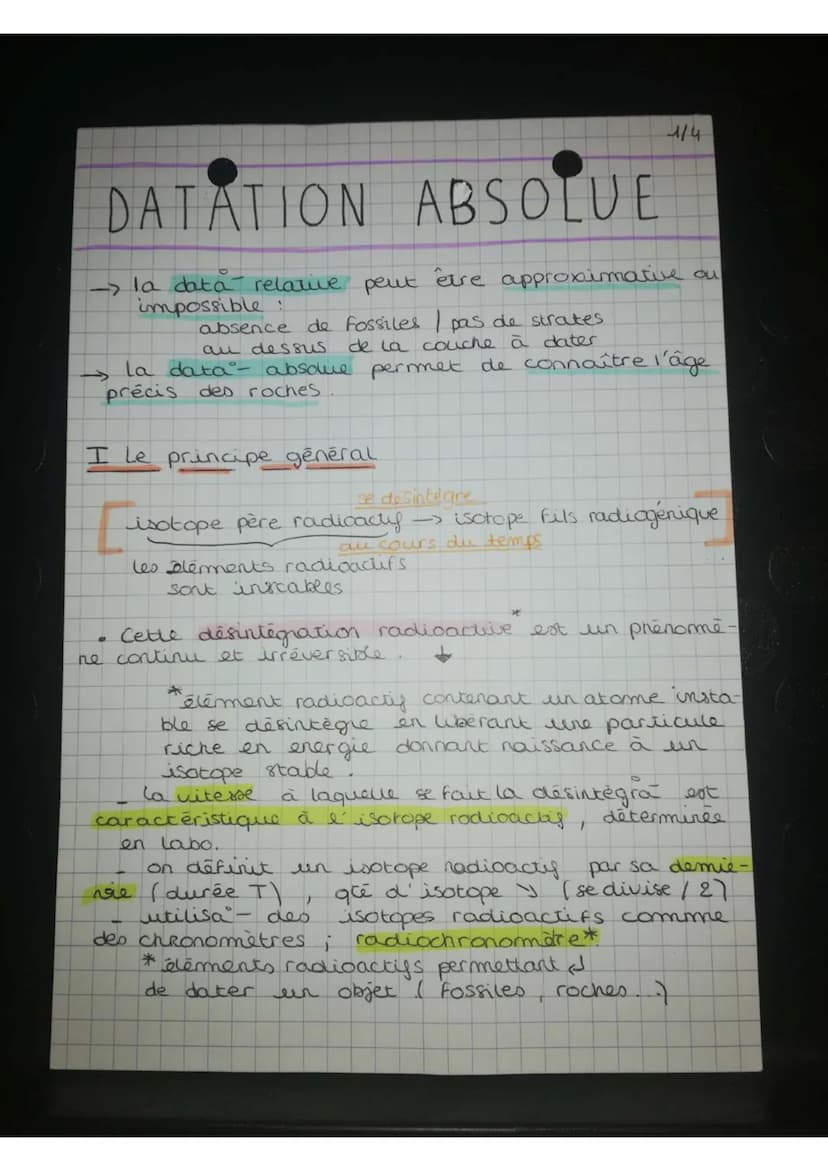 1/4
DATATION ABSOLUE
→ la data°- relative peut être approximative ou
impossible :
absence de fossiles / pas de strates
au dessus de la couche à dater
→ la data°- absolue permet de connaître l'âge
précis des roches.
I Le principe général
se désintègre
[isotope père radioactif → isotope fils radiogénique]
au cours du temps
les éléments radioactifs
sont instables
• Cette désintégration radioactive* est un phénomè-
ne continu et irréversible. ↓
*élément radioactif contenant un atome insta-
ble se désintègre en libérant une particule
riche en energie donnant naissance à un
isotope stable.
- La vitesse à laquelle se fait la désintégra°- est
caractéristique à l'isotope radioactif, déterminée
en labo.
- on définit un isotope radioactif par sa demie-
vie (durée T), qté d'isotope ↘ (se divise / 2)
- utilisa°- des isotopes radioactifs comme
des chronomètres ; radiochronomètre*
* éléments radioactifs permettant ↲
de dater un objet (fossiles, roches...)